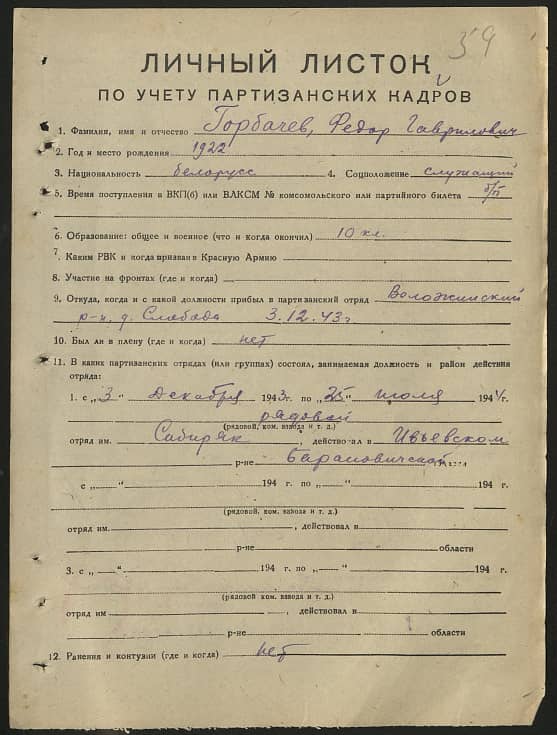 59
ЛИЧНЫЙ ЛИСТОК
ПО УЧЕТУ ПАРТИЗАНСКИХ КАДРОВ
1. Фамилия, имя и отчество Горбачев, Федор Гаврилович
2. Год и место рождения 1922
3. Национальность белорусс 4. Соцположение служащий
5. Время поступления в ВКП(б) или ВЛКСМ № комсомольского или партийного билета б/п
6. Образование: общее и военное (что и когда окончил) 10 кл.
7. Каким РВК и когда призван в Красную Армию
8. Участие на фронтах (где и когда)
9. Откуда, когда и с какой должности прибыл в партизанский отряд Воложинский
р-н, д. Слабода 3.12.43г
10. Был ли в плену (где и когда) нет
11. В каких партизанских отрядах (или группах) состоял, занимаемая должность и район действия
отряда:
1. с „3" Декабря 1943г. по „25" июля 1944г.
рядовой
(рядовой, ком. взвода и т. д.)
отряд им. Сибиряк, действовал в Ивьевском
р-не Барановичской
с „ — " 194 г. по „ — " 194 г.
(рядовой, ком. взвода и т. д.)
отряд им. , действовал в
р-не области
3. с „ — " 194 г. по „ — " 194 г.
(рядовой ком. взвода и т. д.)
отряд им , действовал в
р-не области
12. Ранения и контузии (где и когда) нет